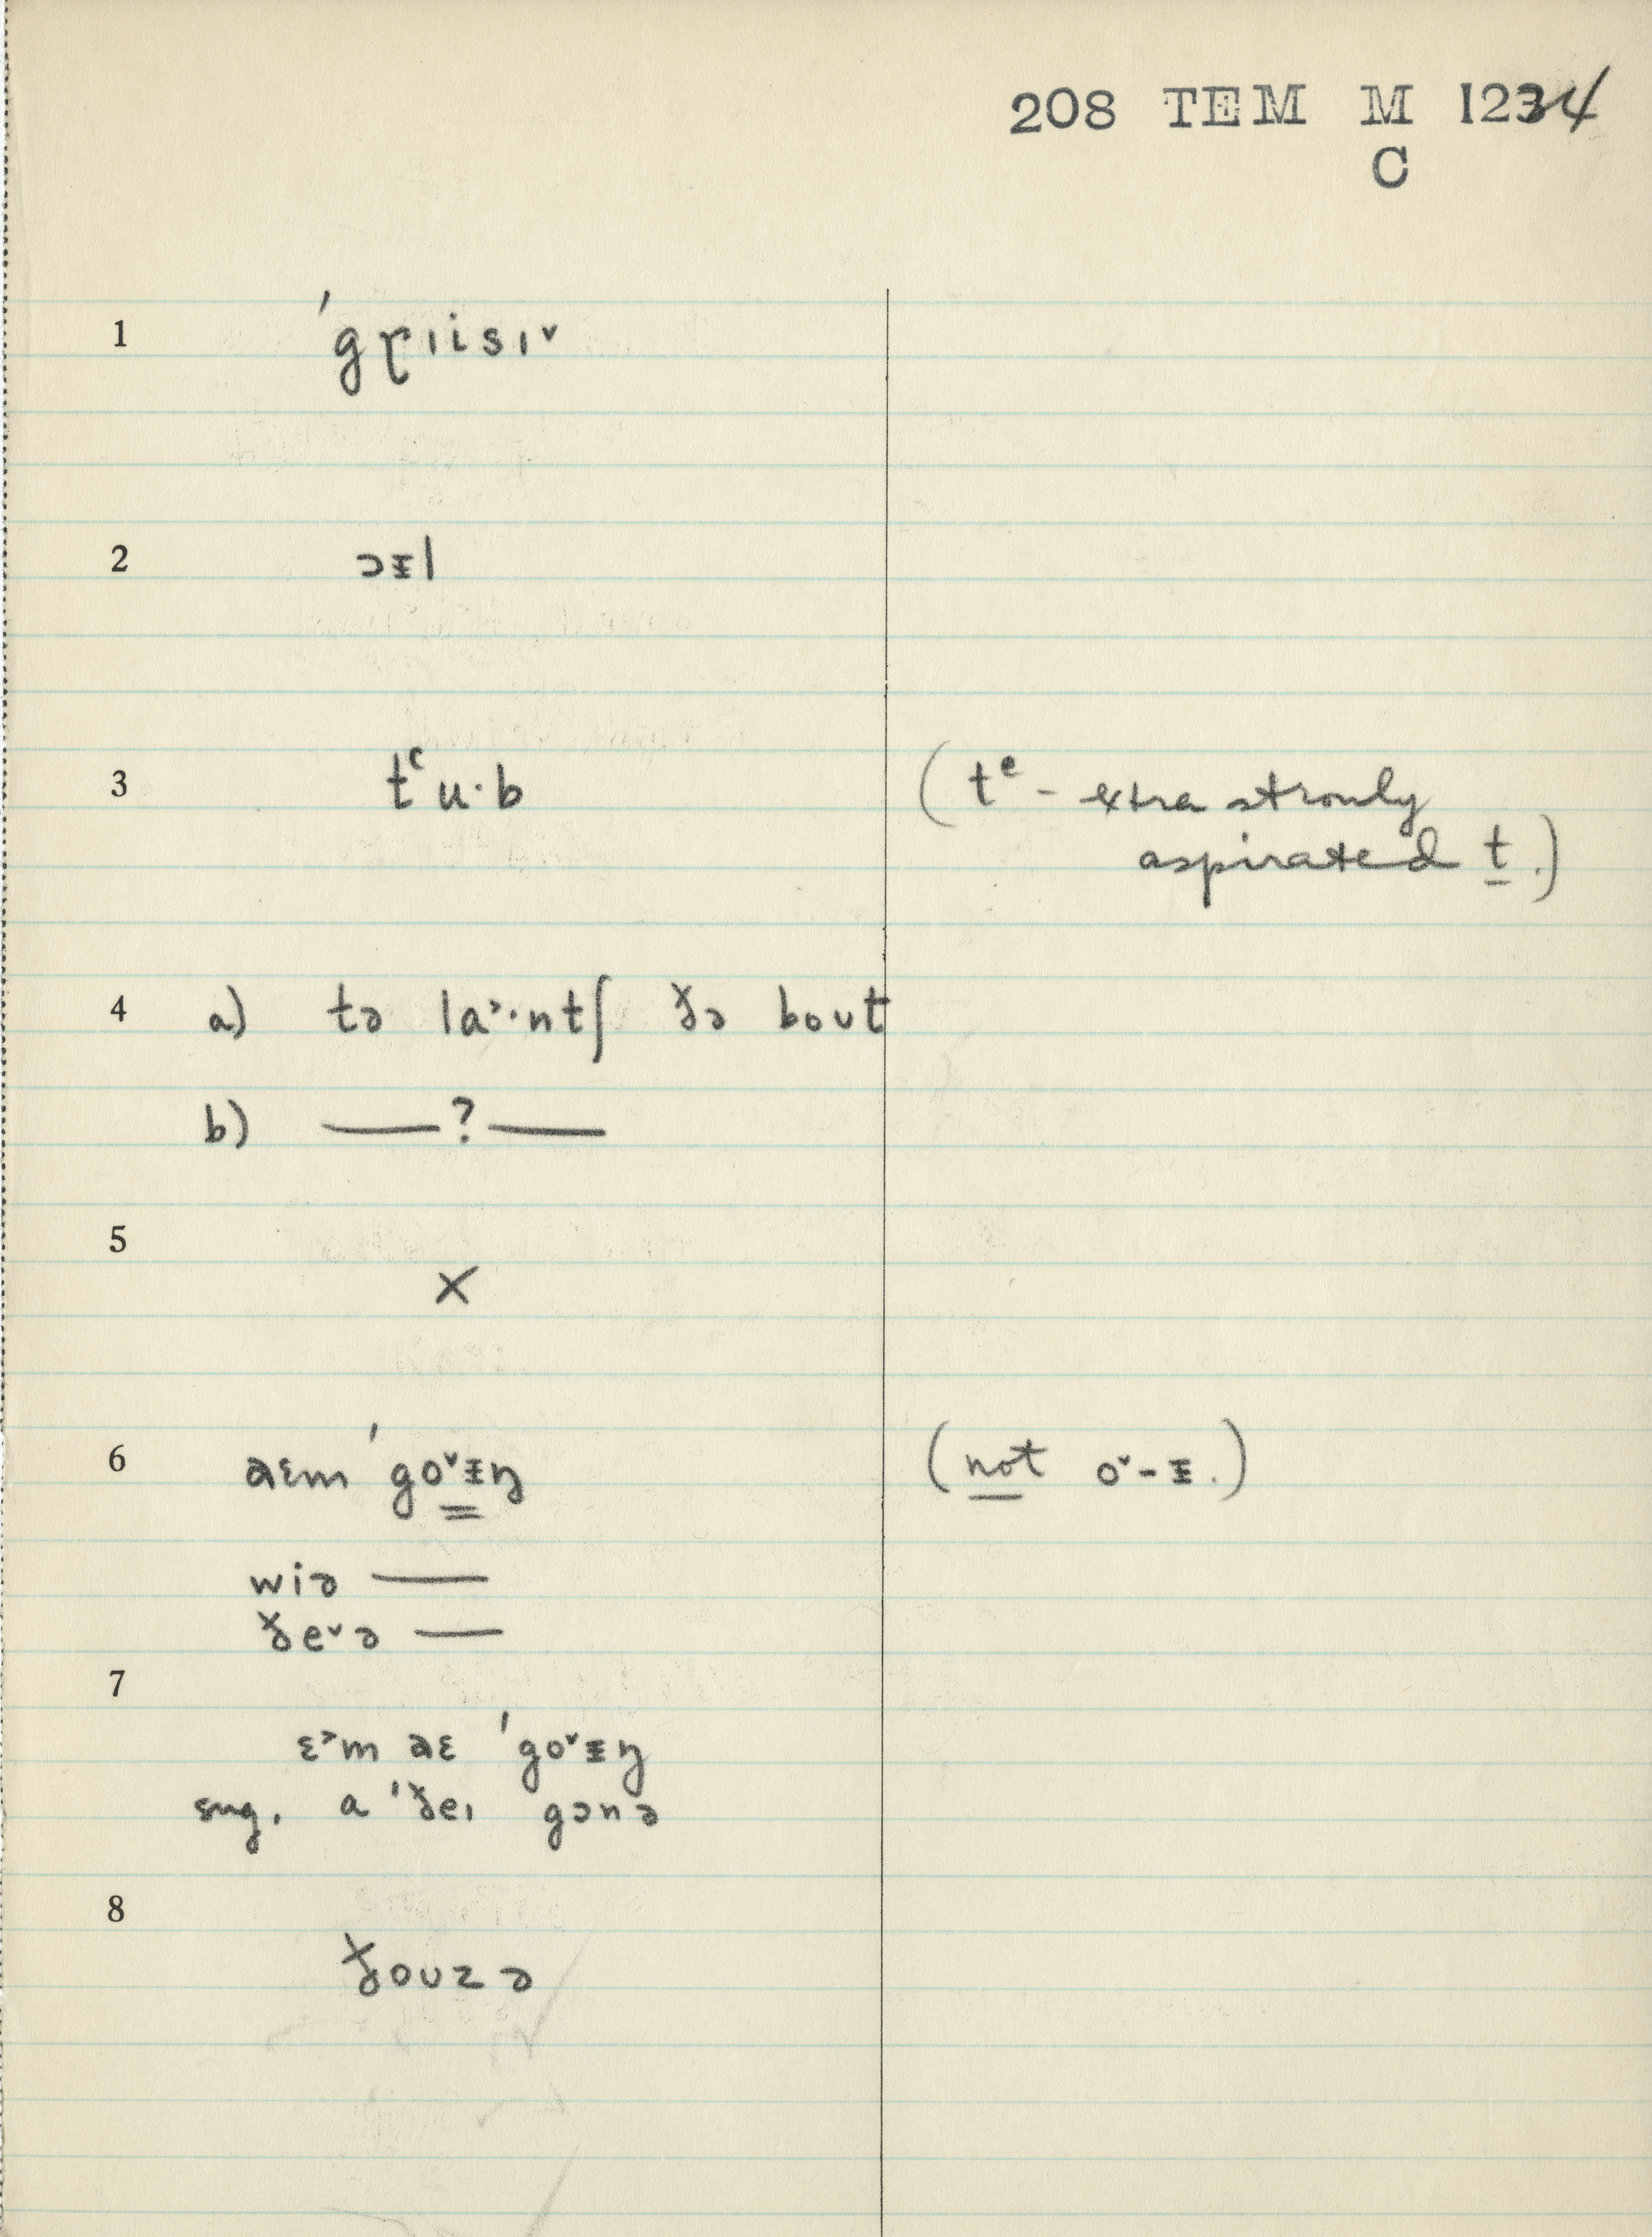 208 TEM M 1234
C
1 ˈgɽɪisɪ˅
2 ɔᵻl
3 tʿu·b (tᵉ - extra stronly
aspirated t.)
4 a) tə la˃·ntʃ ðə bout
b) —?—
5 ×
6 aɛm ˈgo˅ᵻŋ (not o˅-ᵻ.)
wiə —
ðe˅ə —
7
ɛ˃m aɛ ˈgo˅ᵻŋ
sug. a ˈðeɪ gɔnə
8
ðouzə